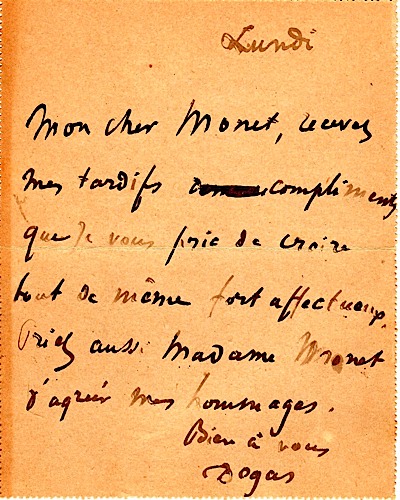 Lundi
Mon cher Monet, recevez
mes tardifs compliments
que je vous prie de croire
tout de même fort affectueux.
Priez aussi Madame Monet
d'agréer mes hommages.
Bien à vous
Degas